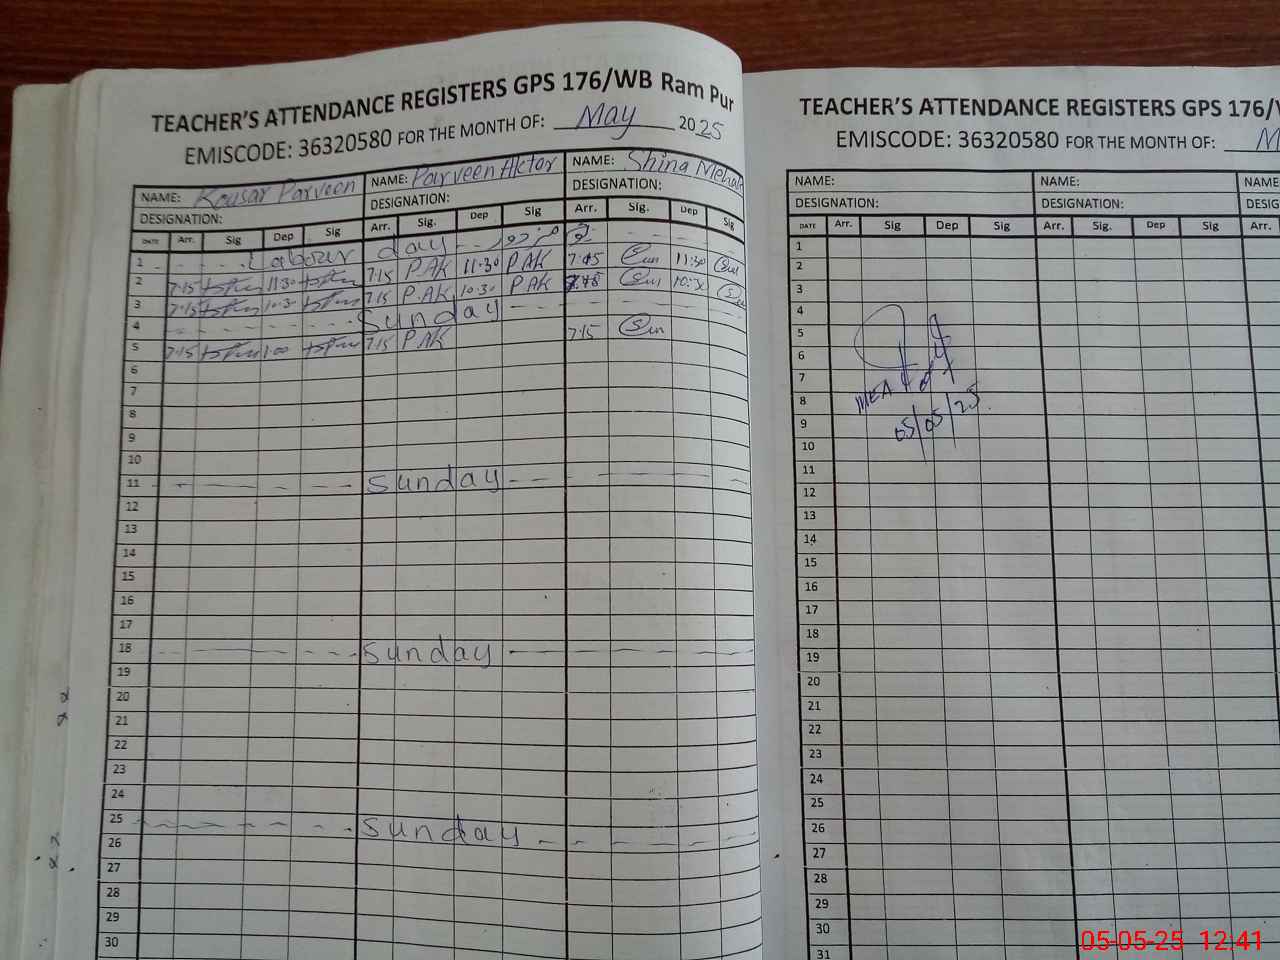 TEACHER'S ATTENDANCE REGISTERS GPS 176/WB Ram Pur
EMISCODE: 36320580 FOR THE MONTH OF: May 2025
NAME: Kousar Parveen NAME: Parveen Akter NAME: Shina Mehak
DESIGNATION: DESIGNATION: DESIGNATION:
DATE Arr. Sig Dep Sig Arr. Sig. Dep Sig Arr. Sig. Dep Sig
1 Labour day
2 7:15 11:30 7:15 PAK 11:30 PAK 7:15 11:30
3 7:15 10:30 7:15 P.AK 10:30 PAK 10:30
4 Sunday
5 7:15 1:00 7:15 PAK 7:15
6
7
8
9
10
11 Sunday
12
13
14
15
16
17
18 Sunday
19
20
21
22
23
24
25 Sunday
26
27
28
29
30
TEACHER'S ATTENDANCE REGISTERS GPS 176/
EMISCODE: 36320580 FOR THE MONTH OF: M
NAME: NAME: NAME
DESIGNATION: DESIGNATION: DESIG
DATE Arr. Sig Dep Sig Arr. Sig. Dep Sig Arr.
1
2
3
4
5
6
7
8
9
10
11
12
13
14
15
16
17
18
19
20
21
22
23
24
25
26
27
28
29
30
31
MEA
05/05/25
05-05-25 12:41